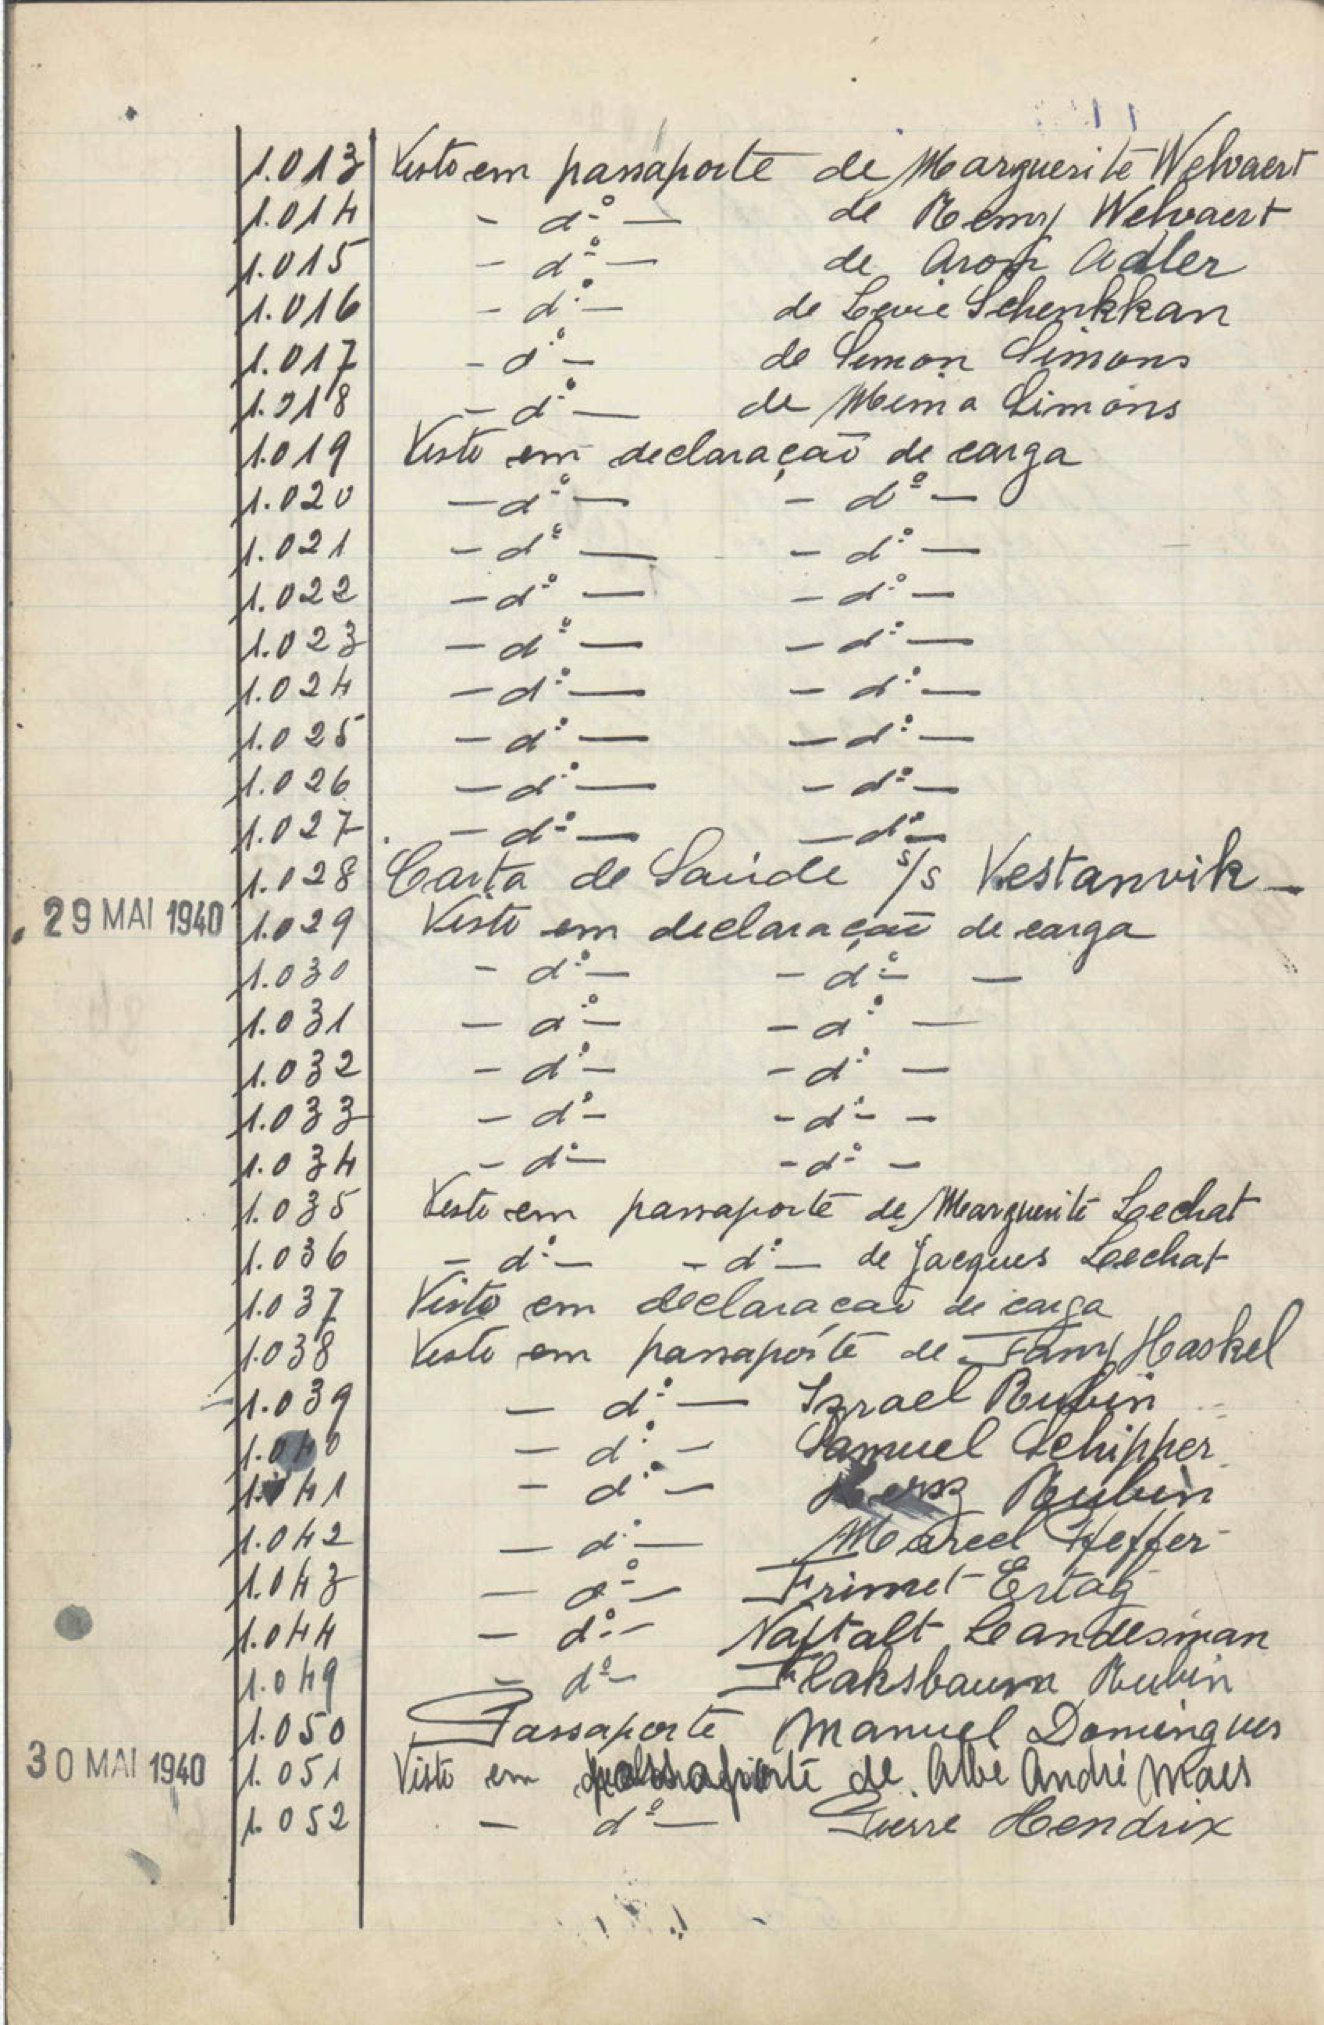 1.013 Visto em passaporte de Marguerite Welvaert
1.014 - dº - de Remy Welvaert
1.015 - dº - de Aron Adler
1.016 - dº - de Levie Schenkkan
1.017 - dº - de Simon Simons
1.018 - dº - de Mina Simons
1.019 Visto em declaração de carga
1.020 - dº - - dº -
1.021 - dº - - dº -
1.022 - dº - - dº -
1.023 - dº - - dº -
1.024 - dº - - dº -
1.025 - dº - - dº -
1.026 - dº - - dº -
1.027 - dº - - dº -
1.028 Carta de Saúde s/s Vestanvik -
29 MAI 1940 1.029 Visto em declaração de carga
1.030 - dº - - dº - -
1.031 - dº - - dº -
1.032 - dº - - dº -
1.033 - dº - - dº - -
1.034 - dº - - dº - -
1.035 Visto em passaporte de Marguerite Lechat
1.036 - dº - - dº - de Jacques Lechat
1.037 Visto em declaração de carga
1.038 Visto em passaporte de Fany Haskel
1.039 - dº - Izrael Rubin
1.040 - dº - Samuel Schipper
1.041 - dº - Hersz Rubin
1.042 - dº - Marcel Heffer
1.043 - dº - Frimet Ertag
1.044 - dº - Naftalt Landesman
1.049 - dº - Flaksbaum Rubin
1.050 Passaporte Manuel Domingues
30 MAI 1940 1.051 Visto em passaporte de André Maes
1.052 - dº - Pierre Hendrix